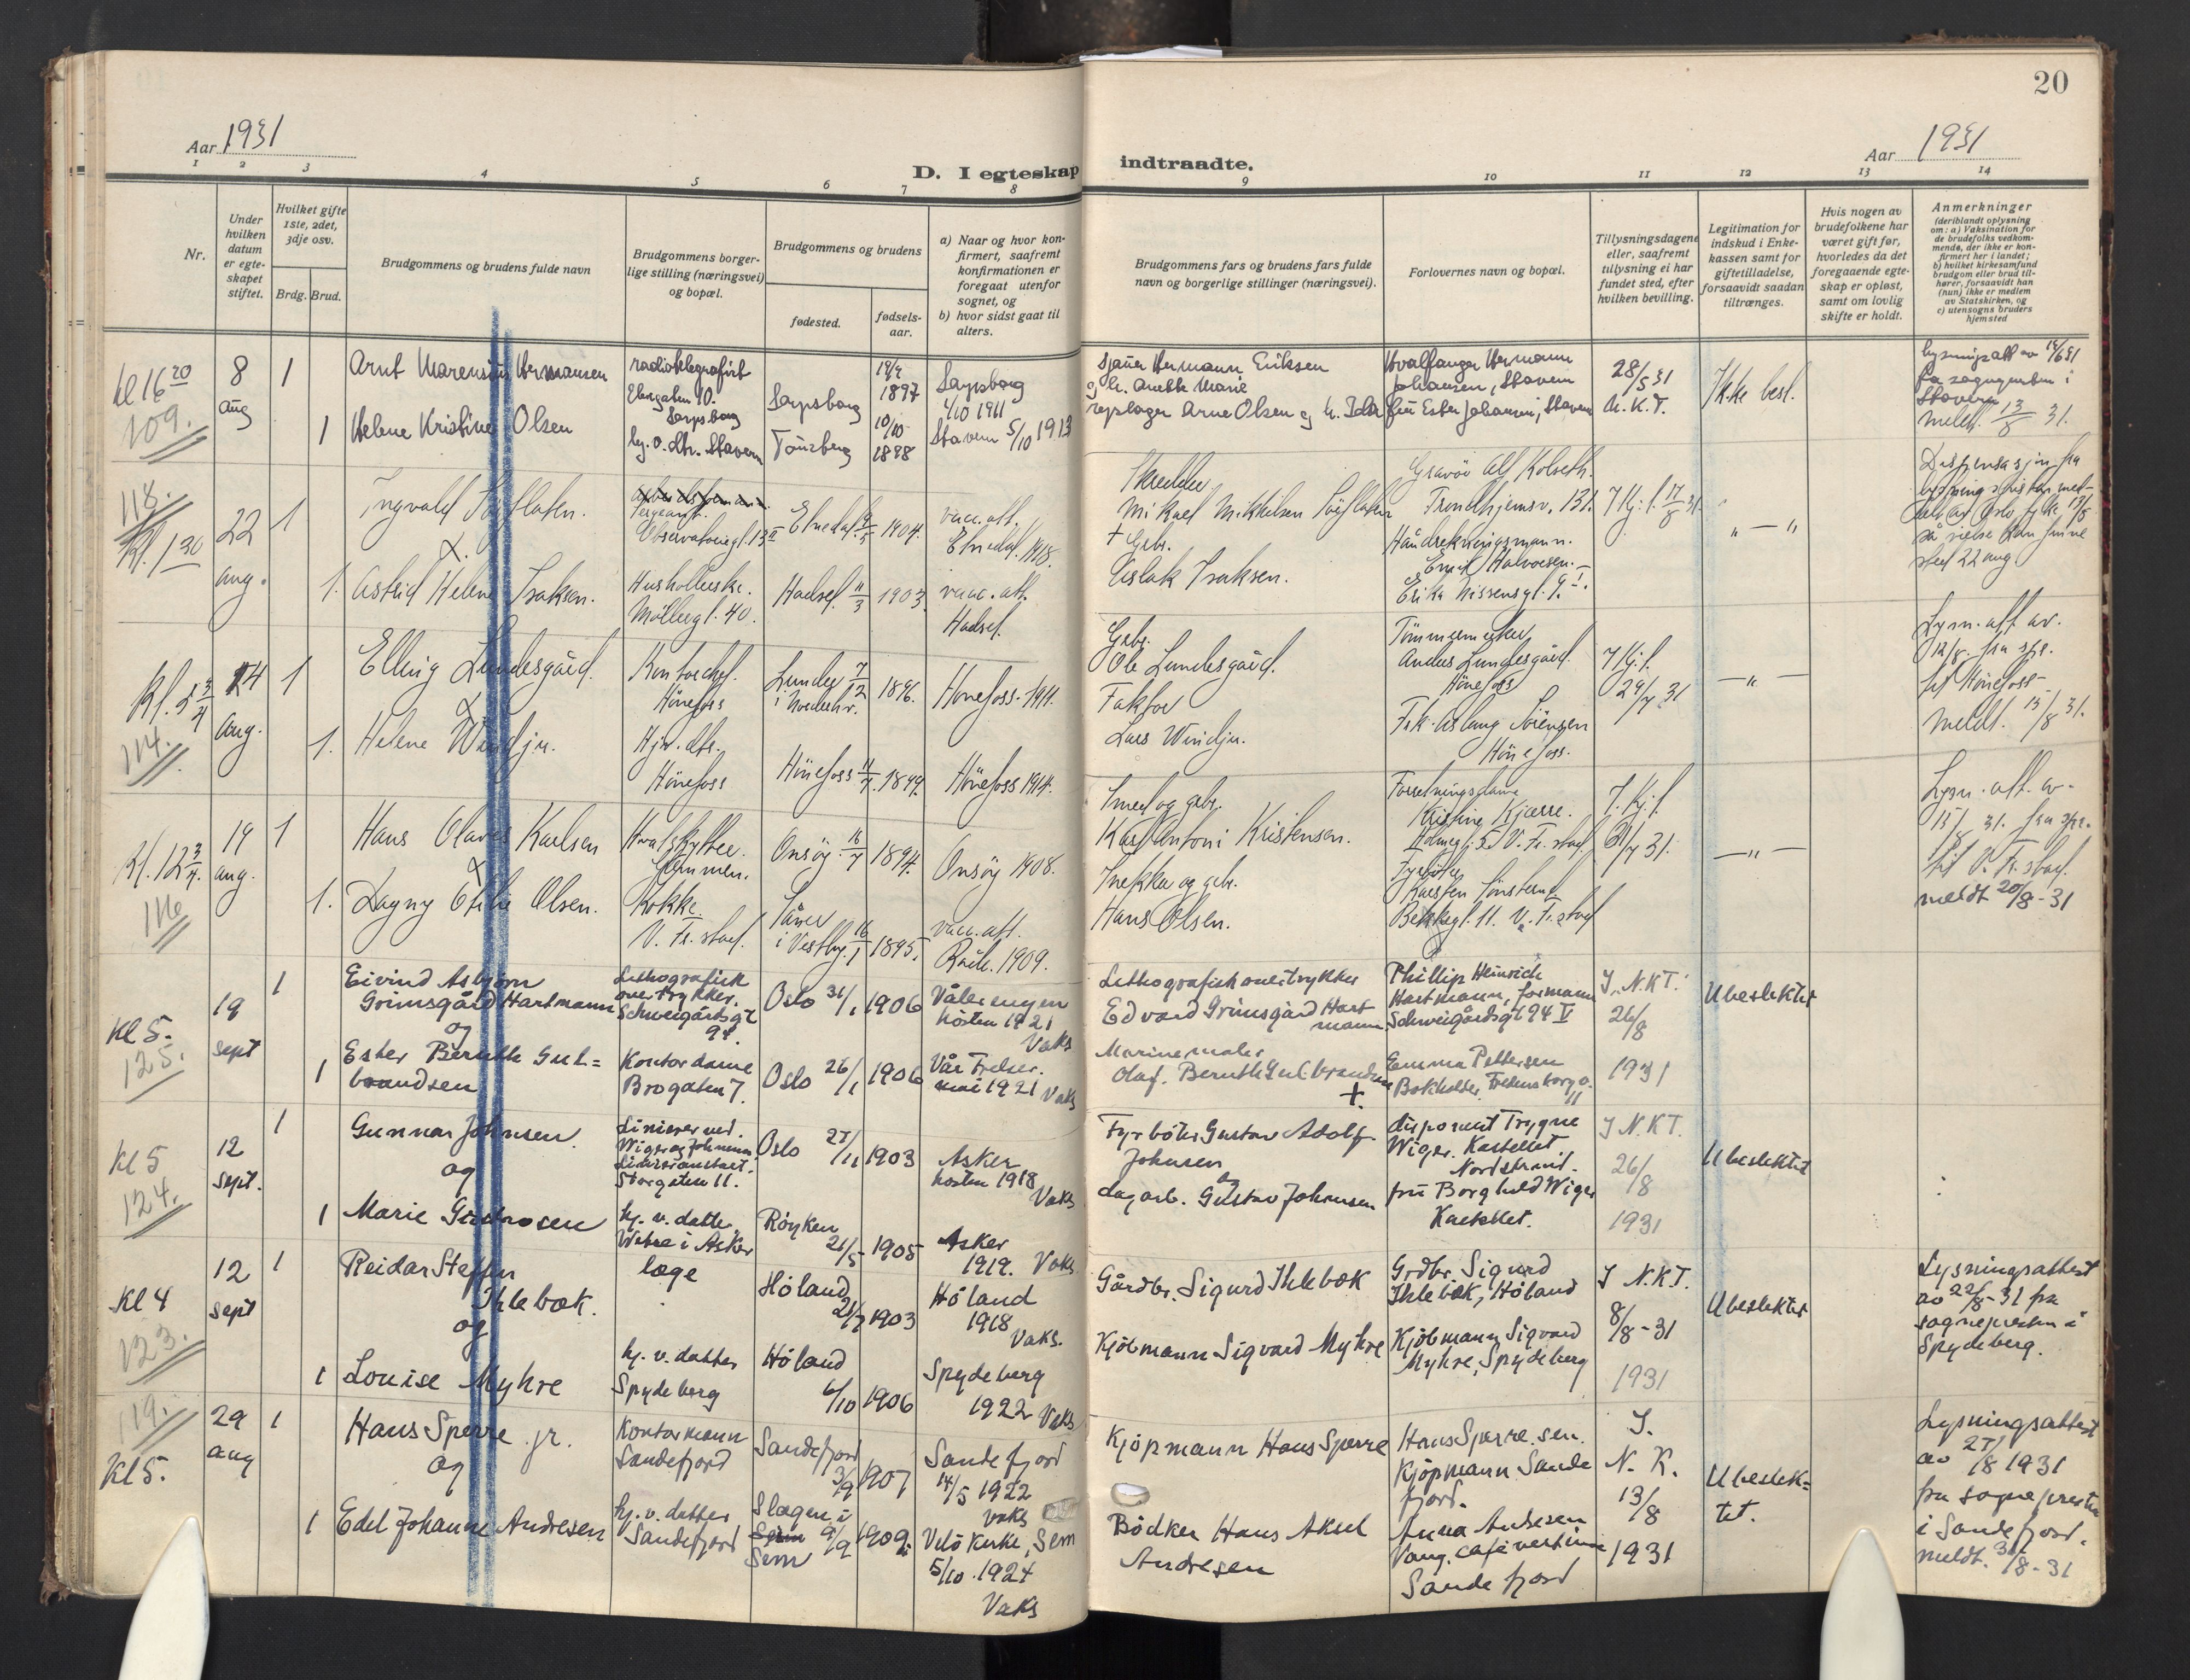 20
Aar 1931
Aar 1931
D. I egteskap indtraadte.
1 2 3 4 5 6 7 8 9 10 11 12 13 14
Nr.
Under hvilken datum er egte-skapet stiftet.
Hvilket gifte 1ste, 2det, 3dje osv.
Brdg. Brud.
Brudgommens og brudens fulde navn
Brudgommens borger-lige stilling (næringsvei) og bopæl.
Brudgommens og brudens
fødested.
fødsels-aar.
a) Naar og hvor kon-firmert, saafremt konfirmationen er foregaat utenfor sognet, og
b) hvor sidst gaat til alters.
Brudgommens fars og brudens fars fulde navn og borgerlige stillinger (næringsvei).
Forlovernes navn og bopæl.
Tillysningsdagene eller, saafremt tillysning ei har fundet sted, efter hvilken bevilling.
Legitimation for indskud i Enke-kassen samt for giftetilladelse, forsaavidt saadan tiltrænges.
Hvis nogen av brudefolkene har været gift før, hvorledes da det foregaaende egte-skap er opløst, samt om lovlig skifte er holdt.
Anmerkninger
(deriblandt oplysning om: a) Vaksination for de brudefolks vedkom-mende, der ikke er kon-firmert her i landet; b) hvilket kirkesamfund brudgom eller brud til-hører, forsaavidt han (hun) ikke er medlem av Statskirken, og c) utensogns bruders hjemsted
kl 16 20
109.
8 aug
1
Arnt Marensius Hermansen
radiotelegrafist
Sarpsborg
Sarpsborg
1897
Sarpsborg
1/10 1911
Hermann Eriksen
Anette Marie
Hvalfanger Hermann
Johansen, Stavern
28/5 31
N. K. T.
Ikke besl.
Stavern
meldt. 13/8 31.
1
Helene Kristine Olsen
Stavern
Tønsberg
10/10
1898
Stavern 5/10 1913
repslager Arne Olsen
fru Ester Johansen, Stavern
118.
Kl. 1 30
22 aug.
1
Ingvald
&
sergeant.
Etnedal. 9/5 1904.
vacc. att.
Etnedal. 1918.
Skredder
Mikael Mikkelsen
Gravør Alf Kolseth.
Trondhjemsv. 131.
I Kj. f. 17/8 31.
" — "
Dispensasjon fra
så vielse kan finne
sted 22 aug.
1.
Astrid Helene Isaksen.
Husholderske.
Møllergt. 40.
Hadsel. 11/3 1903.
vacc. att.
Hadsel.
+ Gbr.
Aslak Isaksen.
Halvorsen.
Erika Nissensgt. 9 I.
Kl. 5 3/4
114.
24 aug.
1
Elling Lundesgård.
&
Kontorchef.
Hønefoss
Lunder 7/2
i Norderhov.
1896.
Hønefoss. 1911.
Gbr.
Ole Lundesgård.
Tømmermerker
Anders Lundesgård.
Hønefoss
I Kj. f.
29/7 31
— " —
Lysn. att. av.
12/8. fra spr.
til Hønefoss
meldt. 15/8 31.
1.
Helene Windju.
Hjv. dtr.
Hønefoss
Hønefoss 11/7. 1899.
Hønefoss 1914.
Faktor
Lars Windju.
Frk. Aslaug Sørensen
Hønefoss.
Kl. 12 3/4.
116
19 aug.
1
Hans Olaves Karlsen
&
Hvalskytter.
Gommen.
Onsøy. 16/7 1894.
Onsøy 1908.
Smed og gbr.
Karl Antoni Kristensen.
Forretningsdame
Kristine Kjærre.
I. Kj. f.
31/7 31.
— " —
Lysn. att. av.
15/8 31. fra spr.
til V. Fr. stad.
meldt 20/8-31
1.
Dagny Otilie Olsen.
Kokke
V. Fr. stad.
i Vestby. 16/1 1895.
vacc. att.
Råde. 1909.
Snekker og gbr.
Hans Olsen.
Fyrbøter
Bekkegt. 11. V. Fr. stad
Kl 5.
125.
19 sept
1
Eivind Asbjørn
Grimsgård Hartmann
og
Lithografisk
overtrykker.
Schweigårdsgt
94.
Oslo 31/1 1906
Vålerengen
høsten 1921
Vaks
Lithografisk overtrykker
Edvard Grimsgård Hart
mann
Phillip Heinrich
Hartmann, formann
Schweigårdsgt 94 V
I. N.K.T.
26/8
1931
Ubeslektet
1
Ester Bernth Gul=
brandsen
Kontordame
Brogaten 7.
Oslo 26/1 1906
Vår Frelser.
mai 1921 Vaks
Marinemaler
Olaf. Bernth Gulbrandsen
+
Emma Pettersen
Bokholder, Fredensborg v.
11
Kl 5
124.
12 sept.
1
Gunnar Johnsen.
og
Linierer ved.
Wiger og Johnsens
Linieranstalt.
Storgaten 11.
Oslo 27/11 1903
Asker
høsten 1918
Vaks
Fyrbøter Gustav Adolf
Johnsen
og
disponent Trygve
Wiger. Kastellet
Nordstrand.
I N.K.T.
26/8
1931
Ubeslektet
1
Marie
hj. v. datter
i Asker
Røyken
21/5 1905
Asker
1919. Vaks
dagarb. Gustav Johansen
fru Borghild Wiger
Kastellet.
Kl 4
123.
12 sept
1
Reidar Steffen
Ihlebæk.
og
læge
Høland
21/7 1903
Høland
1918
Vaks.
Gårdbr. Sigurd Ihlebæk
Grdbr. Sigurd
Ihlebæk, Høland
I N.K.T.
8/8-31
1931
Ubeslektet
Lysningsattest
av 22/8-31 fra
sogneprestn i
Spydeberg.
1
Louise Myhre
hj. v. datter
Spydeberg
Høland
6/10 1906
Spydeberg
1922 Vaks
Kjøbmann Sigvard Myhre
Kjøbmann Sigvard
Myhre, Spydeberg
119.
Kl 5.
29 aug
1
Hans Sperre jr.
og
Kontormann
Sandefjord
Sandefjord
3/9 1907
Sandefjord
14/5 1922
Vaks
Kjøpmann Hans Sperre
Hans Sperre sen.
Kjøpmann Sande
fjord.
I.
N. K.
13/8
1931
Ubeslek=
tet.
Lysningsattest
av 27/8 1931
fra sogneprestn
i Sandefjord.
meldt. 31/8-31
1
Edel Johanne Andresen
hj. v. datter
Sandefjord
Slagen i
Sem
Sem
9/9 1909.
Velø Kirke, Sem
5/10. 1924
Vaks
Bødker Hans Aksel
Andresen
Anna Andresen
Vang. cafévertinne
Sandefjord